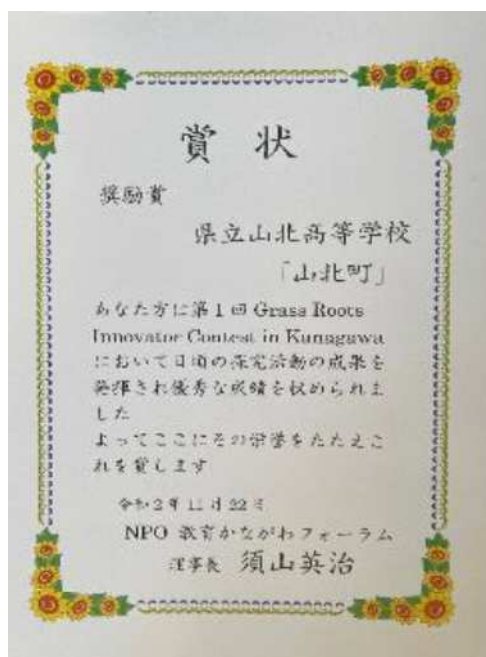 賞 状
奨励賞
県立山北高等学校
「山北町」
あなた方に第1回 Grass Roots
Innovator Contest in Kanagawa
において日頃の探究活動の成果を
発揮され優秀な成績を収められま
した
よってここにその栄誉をたたえこ
れを賞します
令和2年11月22日
NPO 教育かながわフォーラム
理事長 須山英治